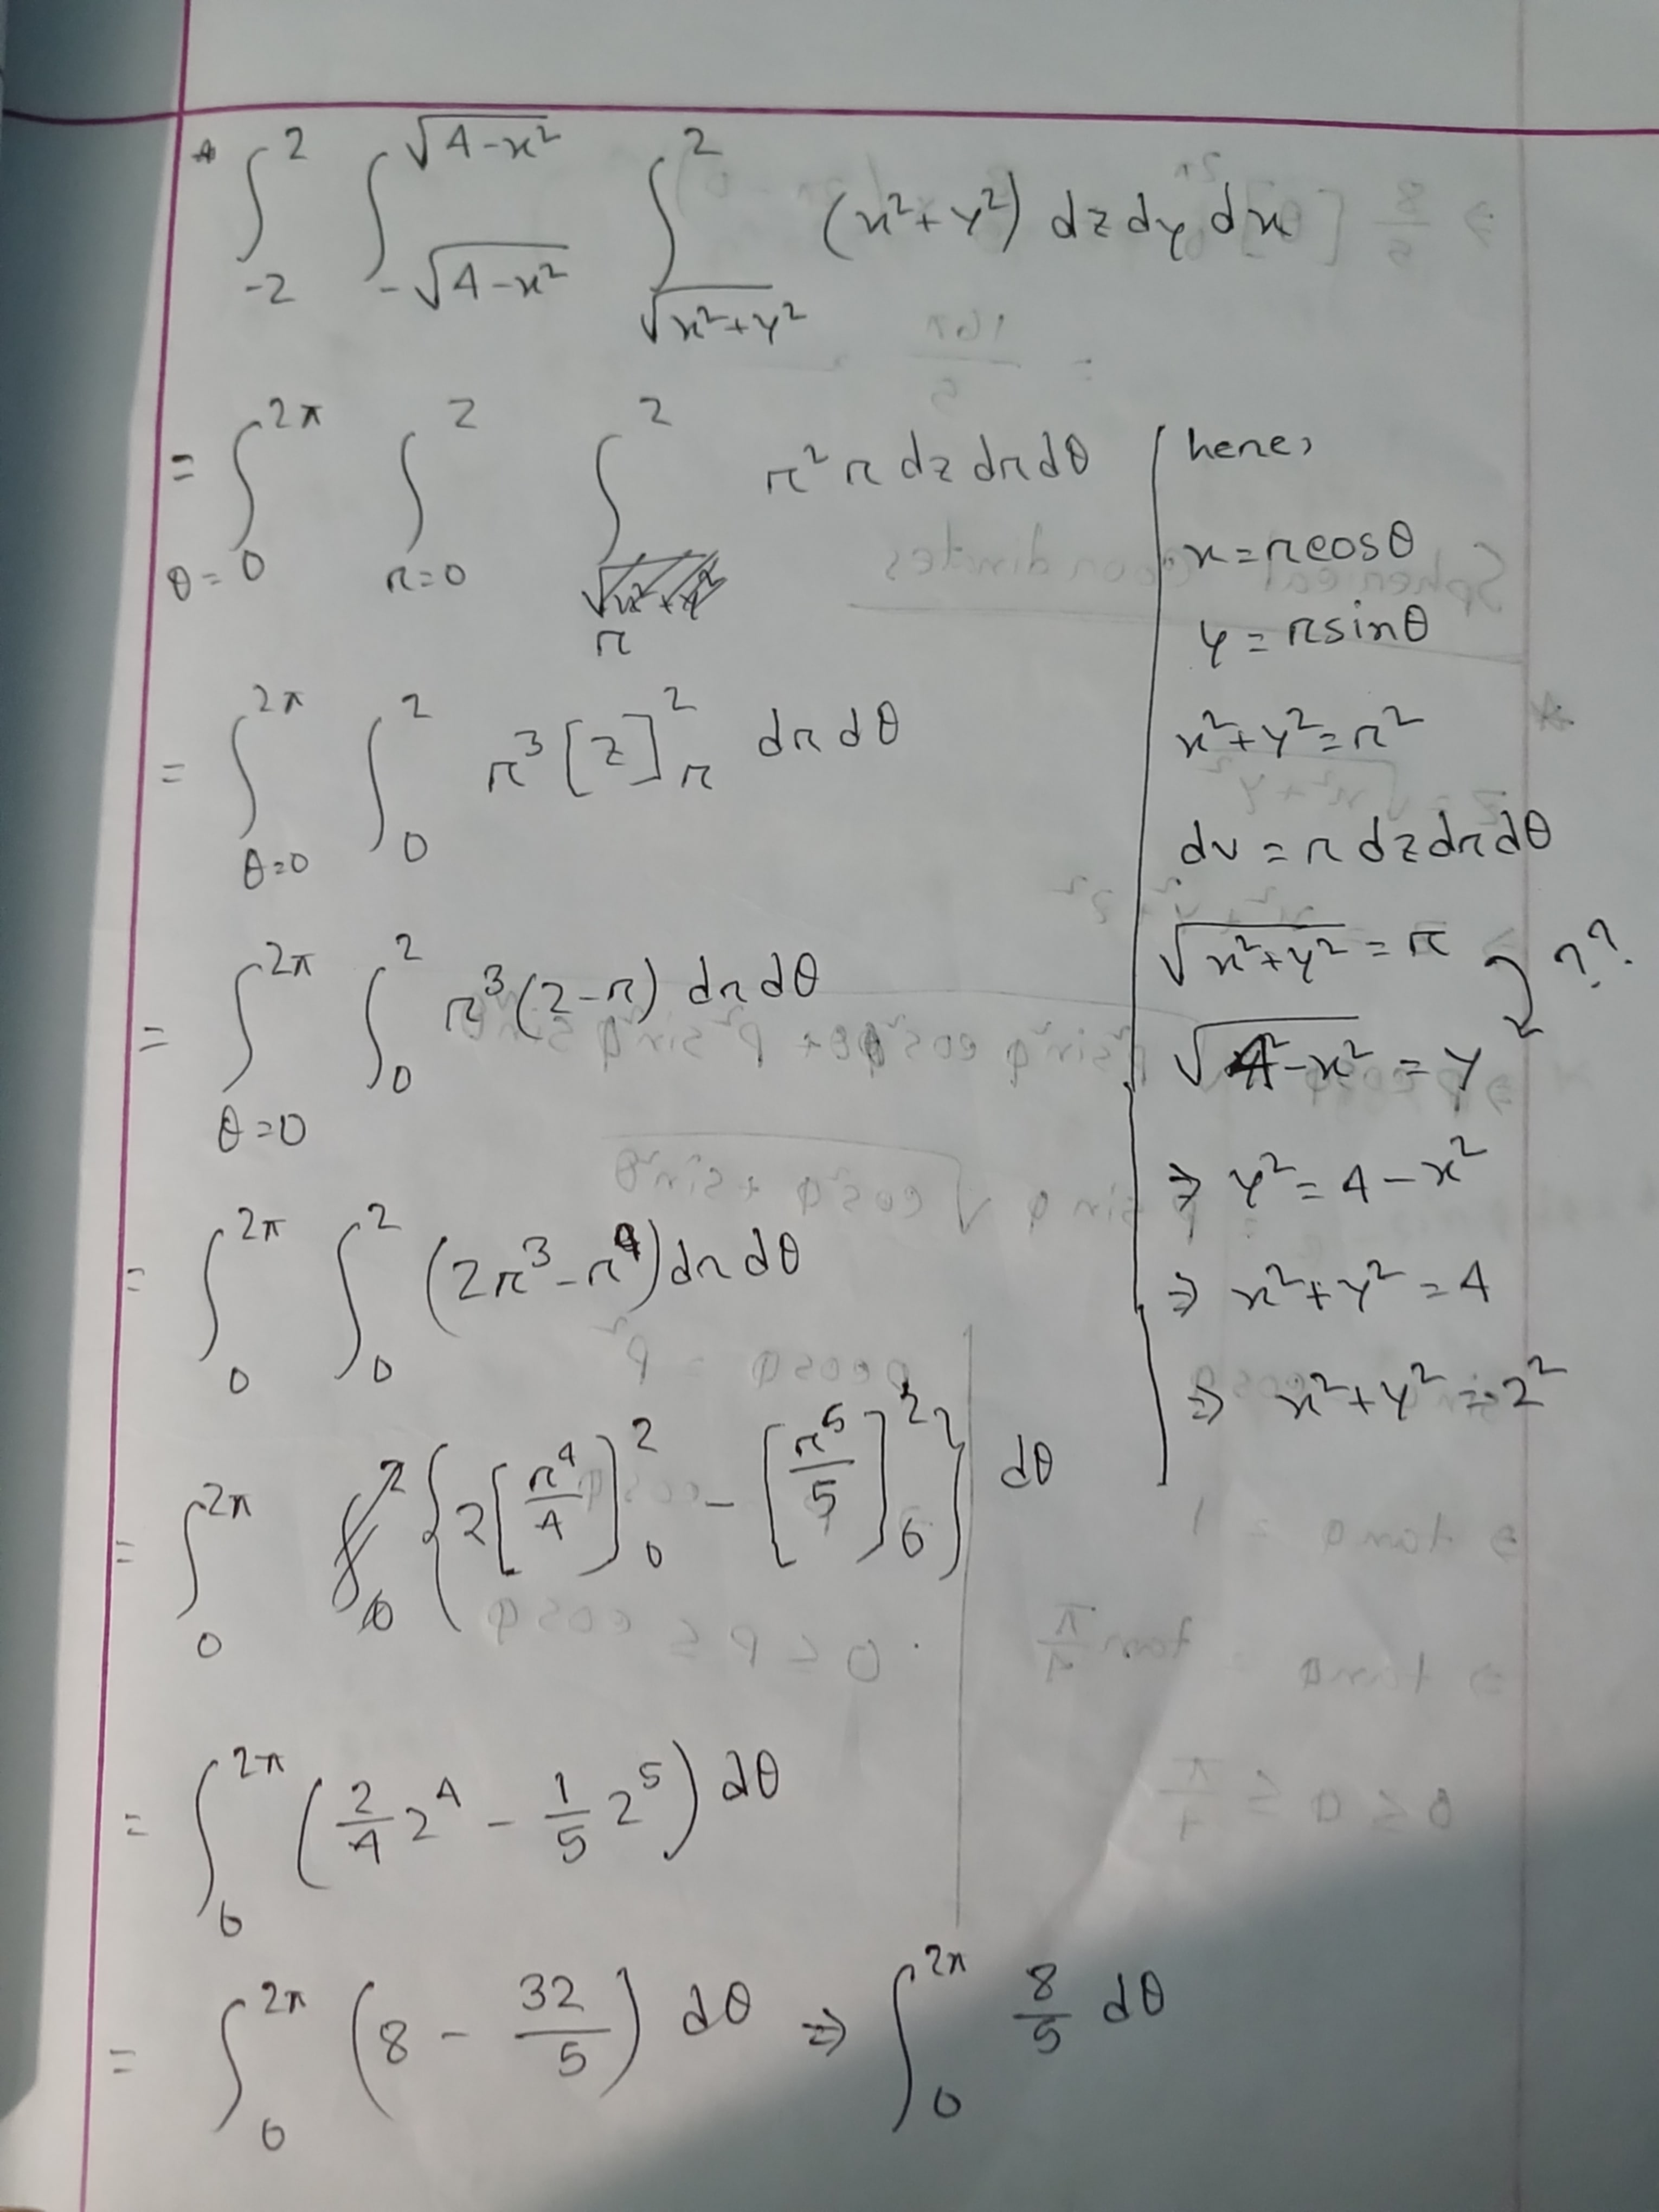 * ∫_{-2}^{2} ∫_{-√(4-x²)}^{√(4-x²)} ∫_{√(x²+y²)}^{2} (x²+y²) dz dy dx
= ∫_{θ=0}^{2π} ∫_{r=0}^{2} ∫_{r}^{2} r² r dz dr dθ
= ∫_{θ=0}^{2π} ∫_{0}^{2} r³ [z]_{r}^{2} dr dθ
= ∫_{θ=0}^{2π} ∫_{0}^{2} r³ (2-r) dr dθ
= ∫_{0}^{2π} ∫_{0}^{2} (2r³ - r⁴) dr dθ
= ∫_{0}^{2π} {2[r⁴/4]_{0}^{2} - [r⁵/5]_{0}^{2}} dθ
= ∫_{0}^{2π} (2/4 2⁴ - 1/5 2⁵) dθ
= ∫_{0}^{2π} (8 - 32/5) dθ ⇒ ∫_{0}^{2π} 8/5 dθ
here,
x = r cosθ
y = r sinθ
x²+y² = r²
dv = r dz dr dθ
√(x²+y²) = r ??
√(4-x²) = y
⇒ y² = 4 - x²
⇒ x²+y² = 4
⇒ x²+y² = 2²